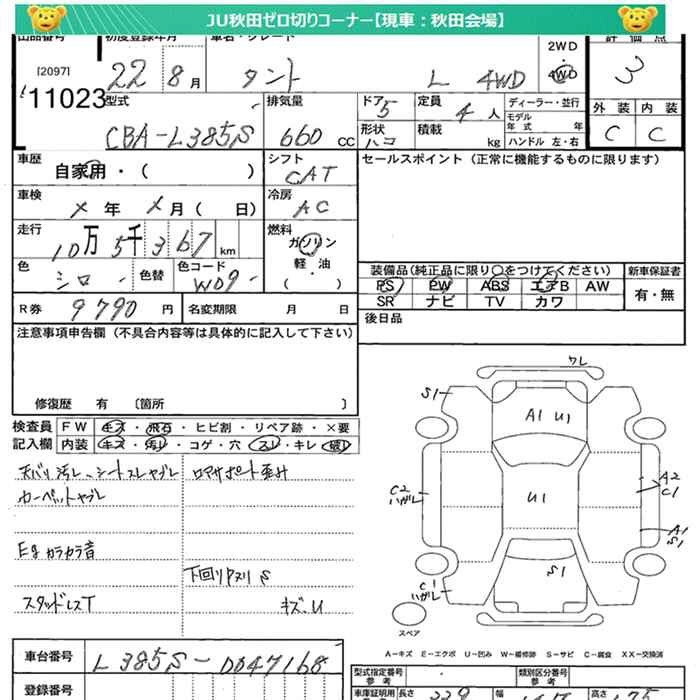 JU秋田ゼロ切りコーナー【現車：秋田会場】
出品番号 初度登録年月 車名・グレード 2WD 評価点
[2097] 22 8月 タント L 4WD 4WD 3
11023
外装 内装
C C
型式 排気量 ドア 定員 ディーラー・並行
CBA-L385S 660 CC 5 4人 モデル年式 年
形状 積載 kg ハンドル 左・右
ハコ
車歴 自家用・( )
シフト CAT
セールスポイント（正常に機能するものに限ります）
車検 メ年 メ月( 日)
冷房 AC
走行 10万5千367 km
燃料 ガソリン
軽・油
( )
色 シロ 色替 色コード W09
装備品(純正品に限り○をつけてください) 新車保証書
PS PW ABS エアB AW 有・無
SR ナビ TV カワ
R券 9790円 名変期限 月 日
後日品
注意事項申告欄（不具合内容等は具体的に記入して下さい）
修復歴 有 〔箇所 〕
検査員 FW キズ・飛石・ヒビ割・リペア跡・×要
記入欄 内装 キズ・汚れ・コゲ・穴・スレ・キレ・破レ
天バリ汚レ、シートスレヤブレ ロアサポート歪み
カーペットヤブレ
Eg カラカラ音
下回りヤヌリ S
スタッドレスT キズ、U
ワレ
S1
A1 U1
C2
ハガレ
U1
A2
C1
A1
S1
S1
C1
ハガレ
スペア
A−キズ E−エクボ U−凹み W−補修跡 S−サビ C−腐食 XX−交換済
車台番号 L385S-0047168
登録番号
型式指定番号 類別区分番号
参考 参考
車庫証明用 長さ 339 幅 147 高さ 175
参考